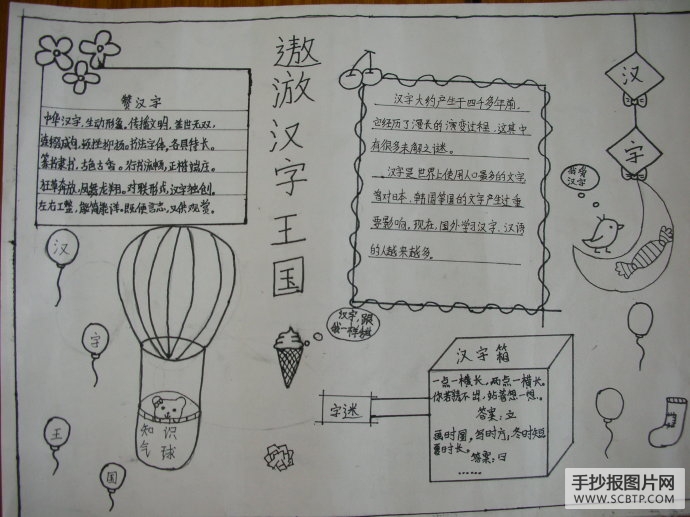 遨游汉字王国
赞汉字
中华汉字,生动形象,传播文明,盖世无双,
连缀成句,顿挫抑扬。书法字体,各具特长。
篆书隶书,古色古香。行书流畅,正楷端庄。
狂草奔放,凤舞龙翔。对联形式,汉字独创。
左右工整,能简能详。既便言志,又供观赏。
汉字大约产生于四千多年前,
它经历了漫长的演变过程,这其中
有很多未解之谜。
汉字是世界上使用人口最多的文字,
曾对日本、韩国等国的文字产生过重
要影响。现在,国外学习汉字、汉语
的人越来越多。
汉
字
我爱
汉字
汉
字
王
国
知识
气球
汉字,跟
我一样
字迷
汉字箱
一点一横长,两点一横长。
你若猜不出,站着想一想。
答案:立
画时圆,写时方,冬时短
夏时长。
答案:日
……
手抄报图片网
WWW.SCBTP.COM